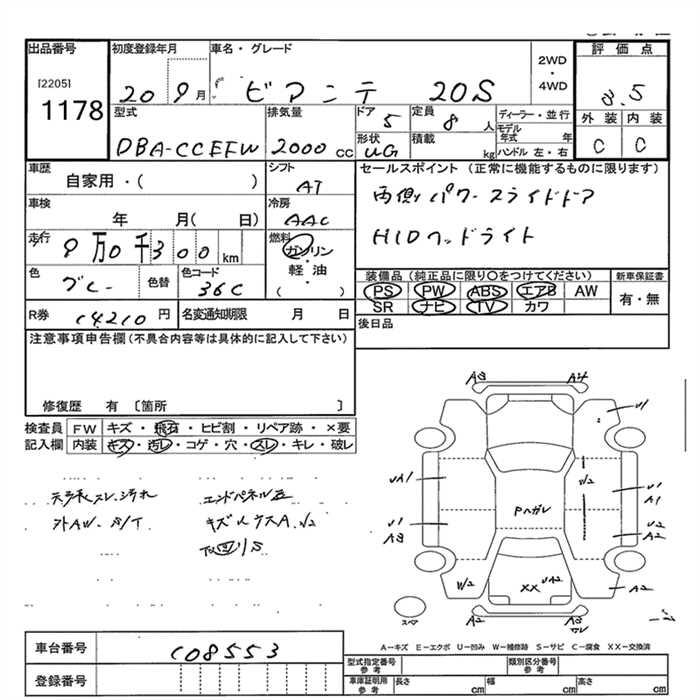 出品番号 初度登録年月 車名・グレード 2WD・4WD 評価点
[2205] 1178 20 9月 ビアンテ 20S 3.5
型式 排気量 ドア 定員 ディーラー・並行 外装 内装
DBA-CCEFW 2000cc 5 8人 モデル年式 年 C C
形状 積載 kg ハンドル 左・右
UG
車歴 シフト セールスポイント (正常に機能するものに限ります)
自家用・( ) AT 両側パワースライドドア
車検 冷房
年 月( 日) AAC HIDヘッドライト
走行 燃料
8万0千300km ガソリン・軽油・( )
色 色替 色コード 装備品(純正品に限り○をつけてください) 新車保証書
グレー 36C PS PW ABS エアB AW 有・無
SR ナビ TV カワ
R券 14210円 名変通知期限 月 日 後日品
注意事項申告欄(不具合内容等は具体的に記入して下さい)
修復歴 有 〔箇所 〕
検査員 FW キズ・飛石・ヒビ割・リペア跡・×要
記入欄 内装 キズ・汚レ・コゲ・穴・スレ・キレ・破レ
天張スレ、汚れ エンドパネル
社外AW、S/T キズ
A3 A4
U1
UA1 W2 U1
A1
Pヘガレ
U1 U2
A3 A2
W2 XX UA2 A2
スペア A2 A3
ワレ
A-キズ E-エクボ U-凹み W-補修跡 S-サビ C-腐食 XX-交換済
車台番号 108553
型式指定番号 参考 類別区分番号 参考
登録番号 車庫証明用 参考 長さ cm 幅 cm 高さ cm